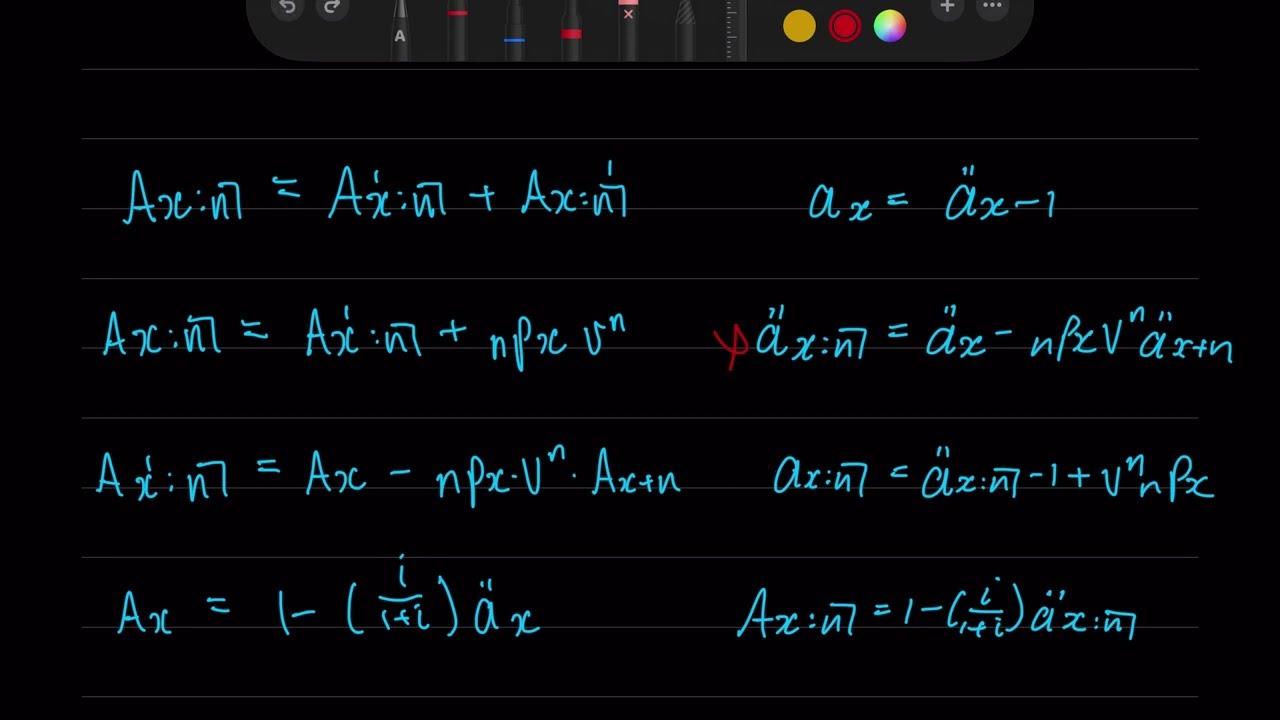 A
Ax:n̅| = A¹x:n̅| + Ax:n̅|¹
ax = äx-1
Ax:n̅| = A¹x:n̅| + npx vⁿ
äx:n̅| = äx - npx vⁿ äx+n
A¹x:n̅| = Ax - npx·vⁿ·Ax+n
ax:n̅| = äx:n̅| -1 + vⁿ npx
Ax = 1 - (i/1+i) äx
Ax:n̅| = 1 - (i/1+i) äx:n̅|